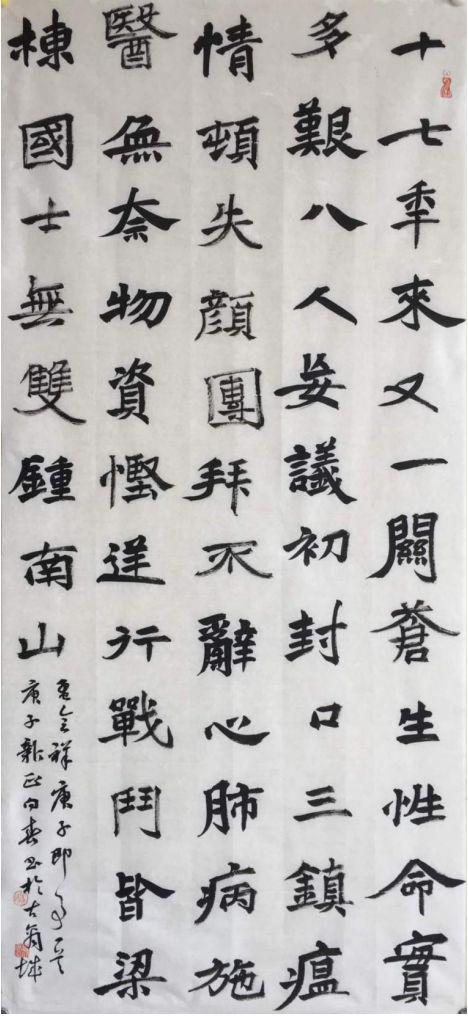 十七年來又一關蒼生性命實
多艱八人妄議初封口三鎮瘟
情頓失顏團拜不辭心肺病施
醫無奈物資慳逆行戰鬥皆梁
棟國士無雙鍾南山
祥庚子即事
庚子新正向春書於古